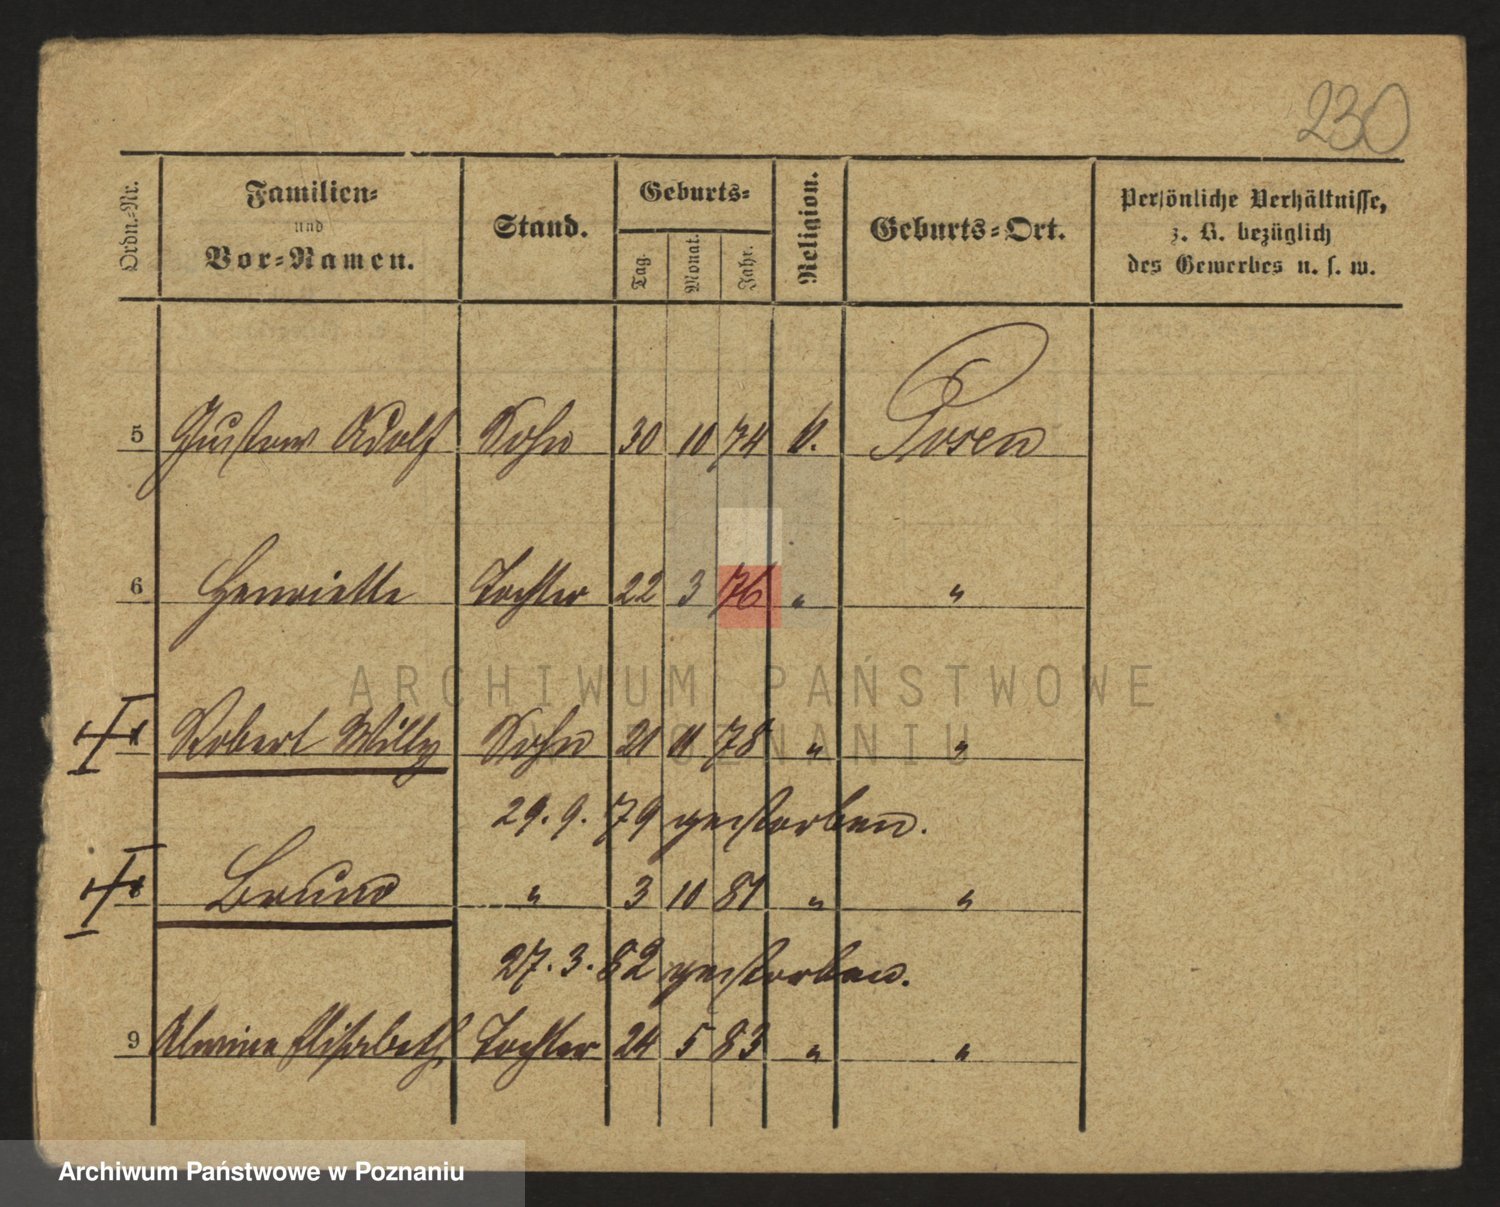 230
Ordn.-Nr.
Familien-
und
Vor-Namen.
Stand.
Geburts-
Tag.
Monat.
Jahr.
Religion.
Geburts-Ort.
Persönliche Verhältnisse,
z. B. bezüglich
des Gewerbes u. s. w.
5 Gustav Adolf Sohn 30 10 74 Posen
6 Henriette Tochter 22 3 76 " "
Robert Willy Sohn 21 11 78 " "
29. 9. 79 gestorben.
Bruno " 3 10 81 " "
27. 3. 82 gestorben.
9 Alwine Elisabeth Tochter 24 5 83 " "
ARCHIWUM PAŃSTWOWE
W POZNANIU
Archiwum Państwowe w Poznaniu